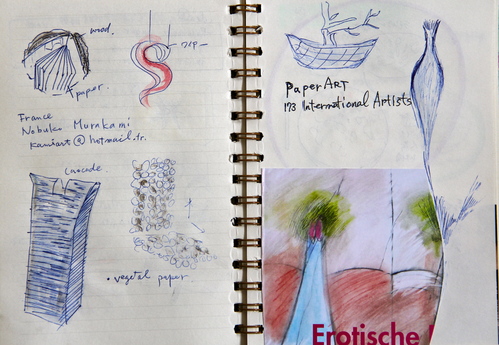 wood.
paper.
France
Nobuko Murakami
kamiart@hotmail.fr.
cascade
• vegetal paper
paper ART
173 International Artists
Erotische